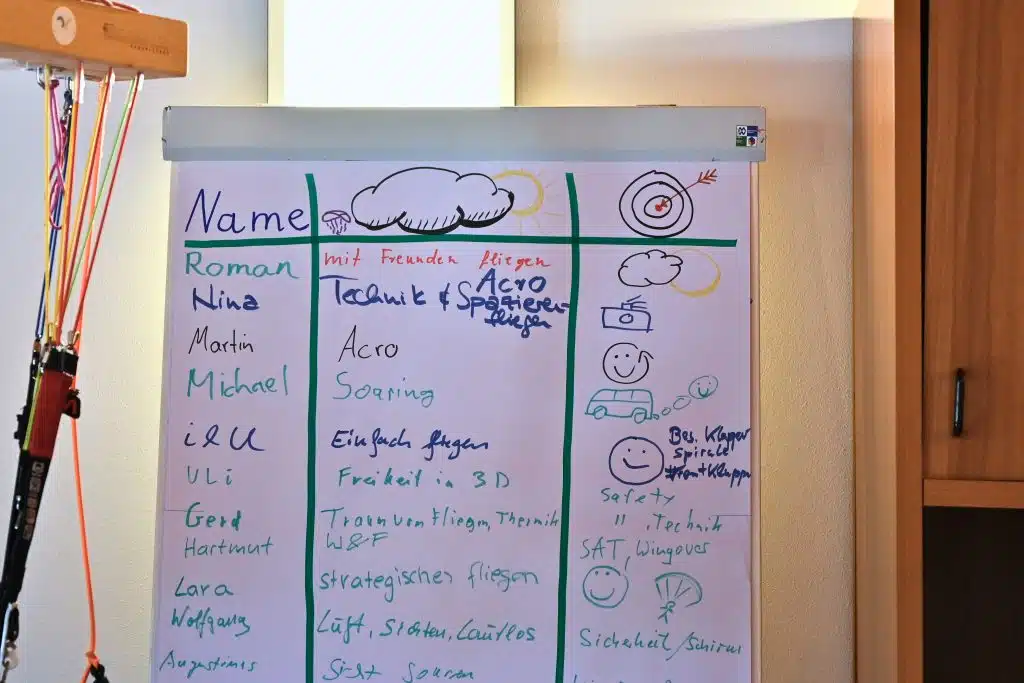 Name
Roman mit Freunden fliegen
Nina Technik & Acro
Spazieren-
fliegen
Martin Acro
Michael Soaring
Einfach fliegen Bes. Klapper
Spirale
ULi Freiheit in 3D
Safety
Gerd Traum vom Fliegen, Thermik " , Technik
Hartmut W&F SAT, Wingover
Lara strategisches fliegen
Wolfgang Luft, Sichten, Lautlos Sicherheit/Schirm
Augustinus